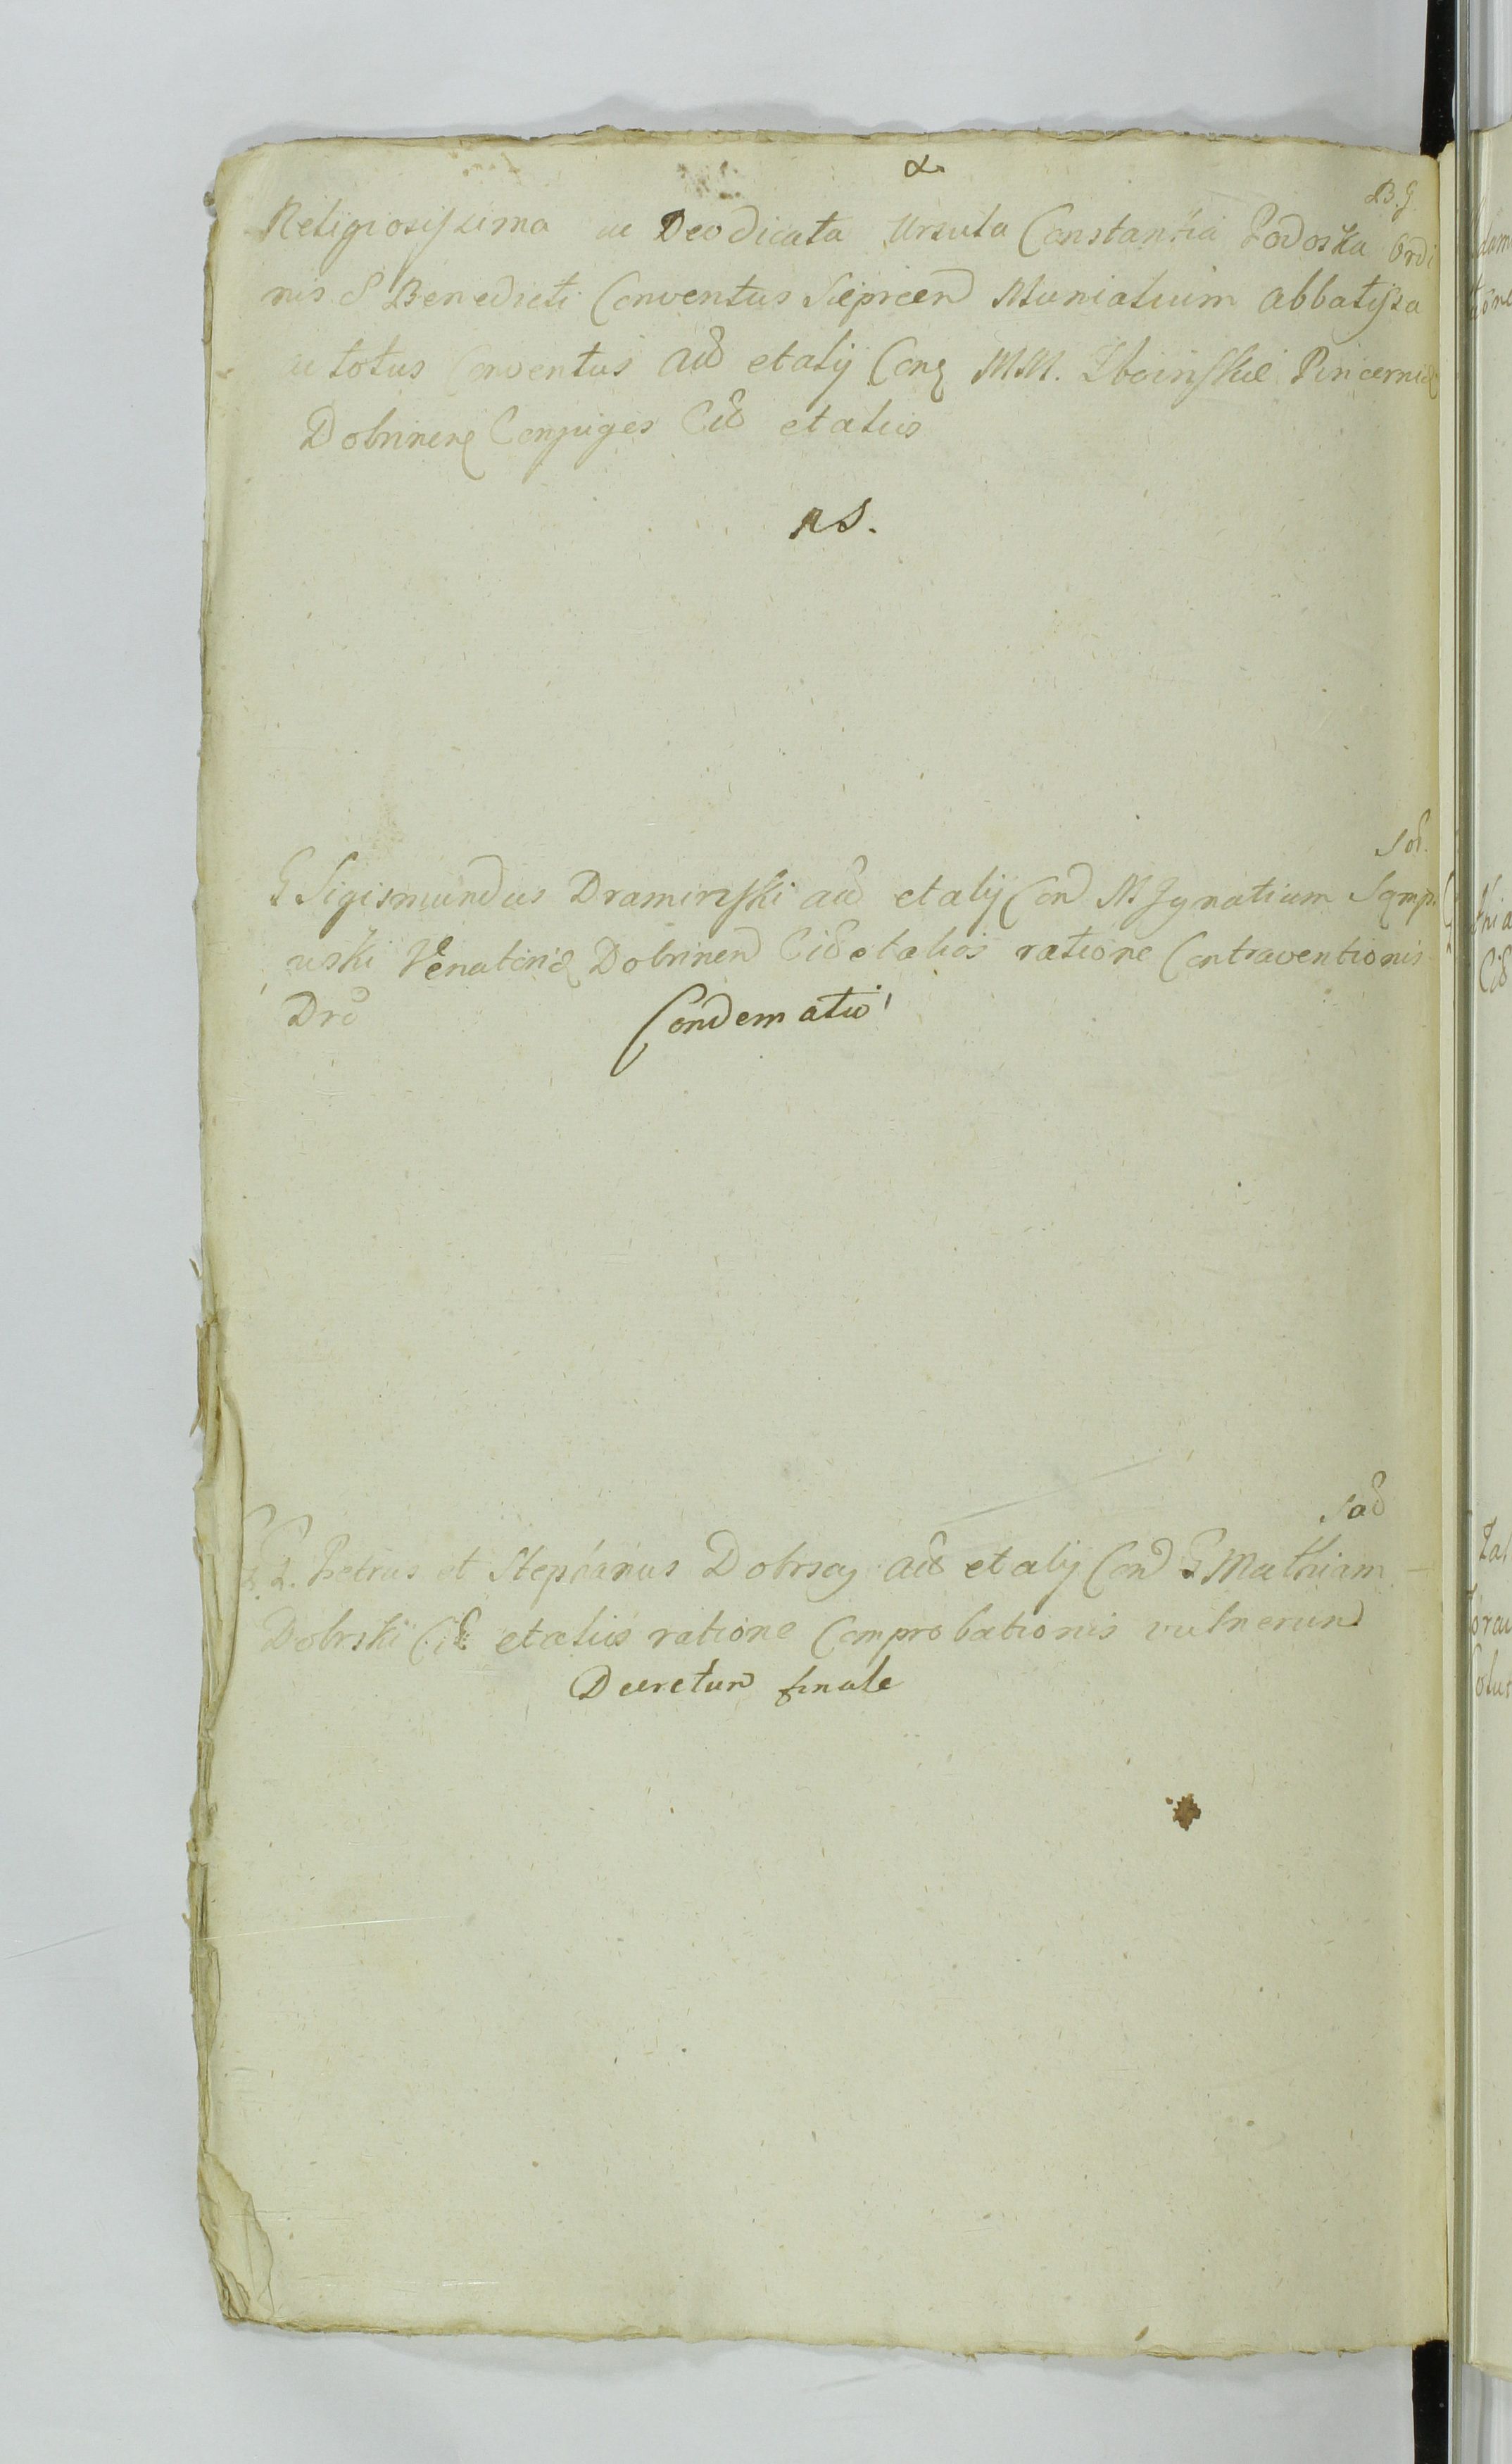 B. G.
Religiosissima ac Deo dicata Ursula Constantia Podoska Ordi
nis S Benedicti Conventus Sieprcen Monialium Abbatissa
ac totus Conventus Act et alij Con MM. Zboinskie Pincernid
Dobrinen Conjuges Cit et alios
RS.
G Sigismundus Dramiński act et alij Con M Ignatium
uski Venatorid Dobrinen Cit et alios ratione Contraventionis
Dro Condematio
Sad
G. G. Petrus et Stephanus Dobrscy act et alij Con G Mathiam
Dobrski Cit et alios ratione Comprobationis vulnerum
Decretum finale